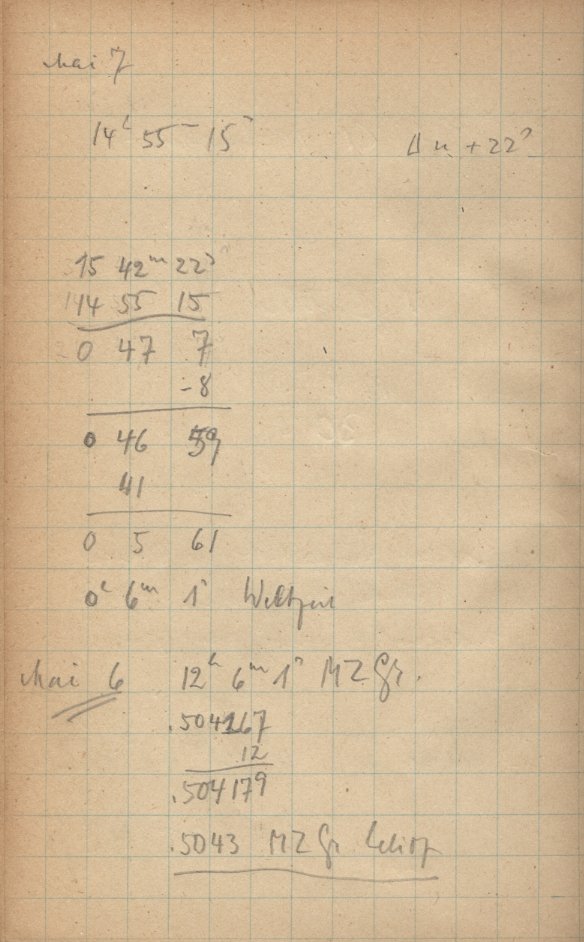 Mai 7
14ʰ 55ᵐ 15ˢ Δu + 22ˢ
15 42ᵐ 22ˢ
14 55 15
0 47 7
-8
0 46 59
41
0 5 61
0ʰ 6ᵐ 1ˢ Weltzeit
Mai 6 12ʰ 6ᵐ 1ˢ MZ Gr.
.504167
12
.504179
.5043 MZ Gr